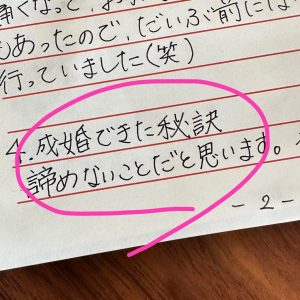 痛くなって、お
もあったので、だいぶ前には
行っていました(笑)
4.成婚できた秘訣
諦めないことだと思います。
-2-